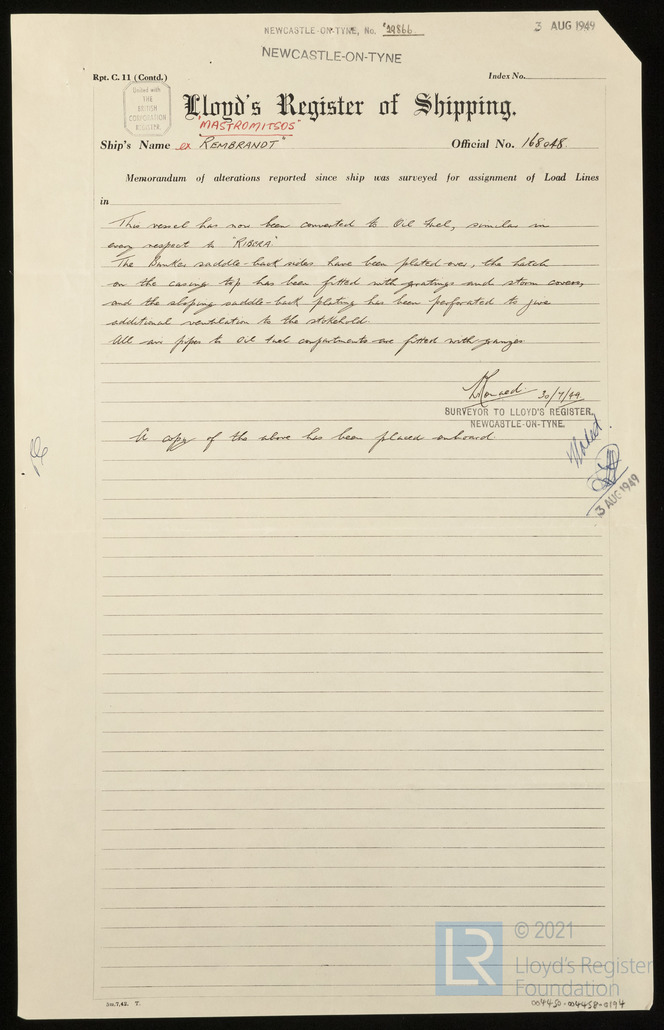 NEWCASTLE-ON-TYNE, No. 19866
3 AUG 1949
NEWCASTLE-ON-TYNE
Rpt. C. 11 (Contd.)
Index No.
United with
THE
BRITISH
CORPORATION
REGISTER
Lloyd's Register of Shipping.
"MASTROMITSOS"
Ship's Name ex "REMBRANDT"
Official No. 168048.
Memorandum of alterations reported since ship was surveyed for assignment of Load Lines
in
This vessel has now been converted to Oil fuel, similar in
every respect to "RIBERA".
The Bunker saddle-back sides have been plated over, the hatch
on the casing top has been fitted with gratings and storm covers,
and the sloping saddle-back plating has been perforated to give
additional ventilation to the stokehold.
All air pipes to Oil fuel compartments are fitted with gauzes
30/7/49.
SURVEYOR TO LLOYD'S REGISTER,
NEWCASTLE-ON-TYNE.
A copy of the above has been placed onboard
Noted
3 AUG 1949
5m.7,42. T.
LR
© 2021
Lloyd's Register
Foundation
004450-004458-0194